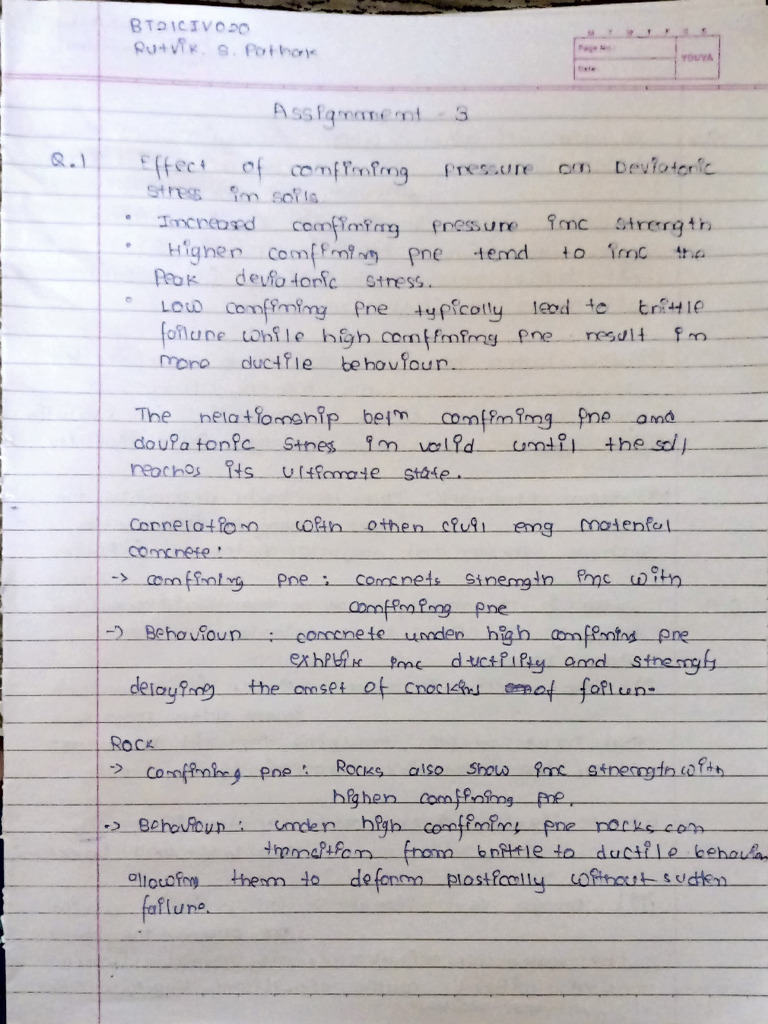 BT21CIV020
Rutvik. S. Pathak
Page No.:
Date:
YOUVA
Assignment - 3
Q.1 Effect of confining pressure on Deviatoric
stress in soils
• Increased confining pressure inc strength
• Higher confining pre tend to inc the
Peak deviatoric stress.
• Low confining pre typically lead to brittle
failure while high confining pre result in
more ductile behaviour.
The relationship betn confining pre and
daviatoric stress in valid until the soil
reaches its ultimate state.
Correlation with other civil eng material
concrete:
-> confining pre : concrets strength inc with
confining pre
-> Behaviour : concrete under high confining pre
exhibix inc ductility and strength
delaying the onset of cracking of failure
Rock
-> confining pre : Rocks also show inc strength with
higher confining pre.
-> Behaviour : under high confining pre rocks can
transition from brittle to ductile behavior
allowing them to deform plastically without sudden
failure.